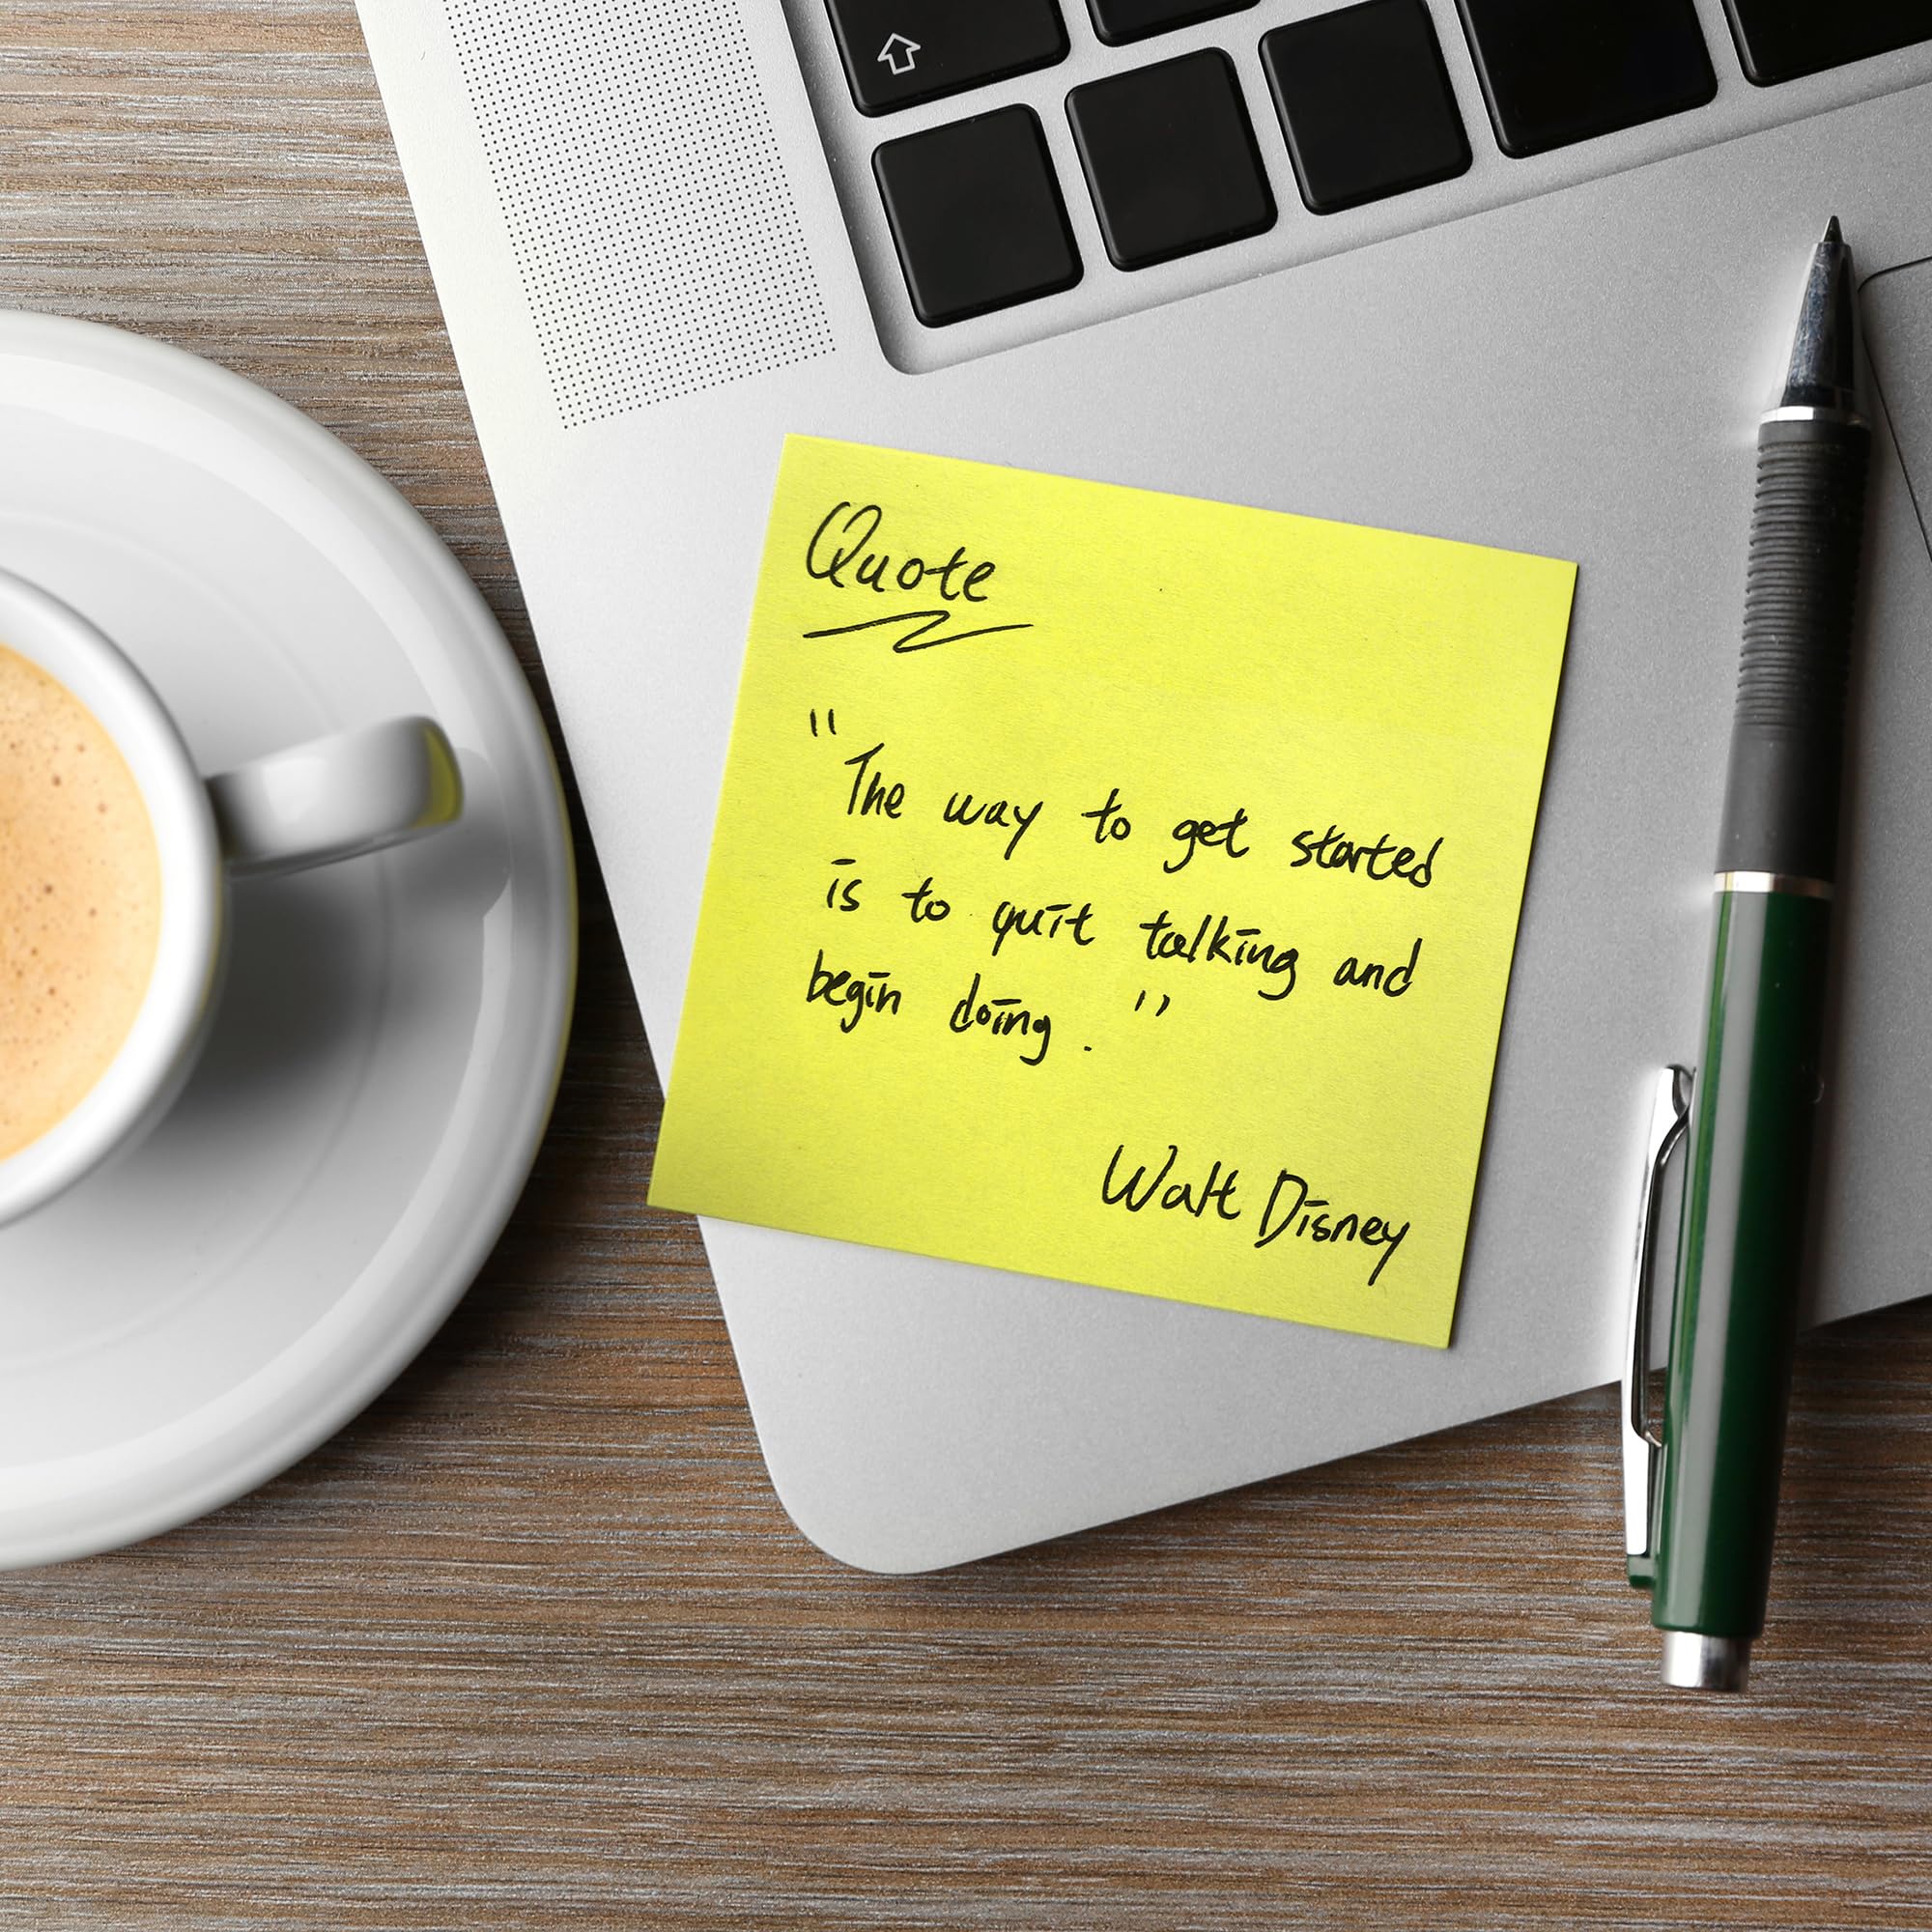 Quote
"The way to get started
is to quit talking and
begin doing."
Walt Disney